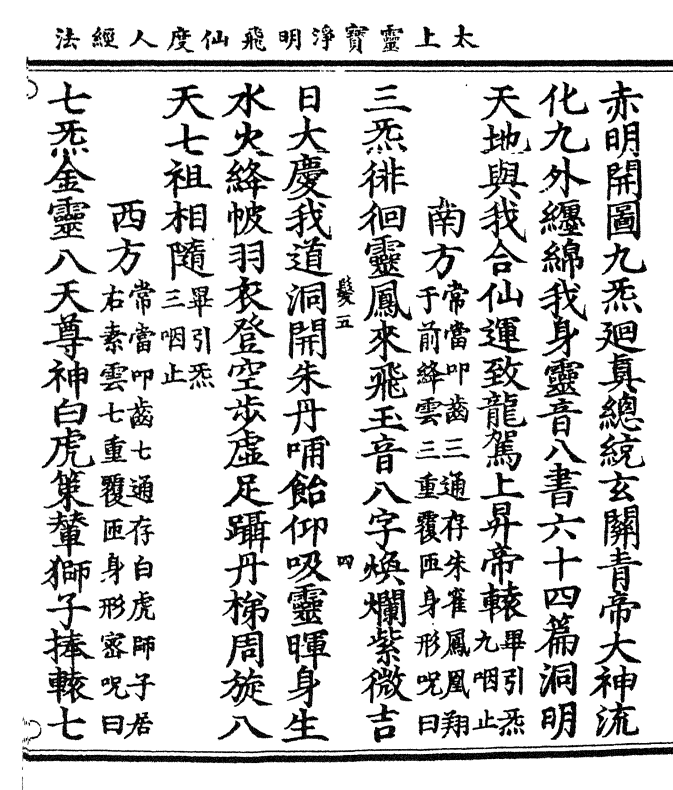 太上靈寶淨明飛仙度人經法
赤明開圖九炁廻真總統玄關青帝大神流
化九外纏綿我身靈音八書六十四篇洞明
天地與我合仙運致龍駕上昇帝轅畢引炁九咽止
南方常當叩齒三通存朱雀鳳凰翔于前絳雲三重覆匝身形呪曰
三炁徘徊靈鳳來飛玉音八字煥爛紫微吉
髮五
四
日大慶我道洞開朱丹哺飴仰吸靈暉身生
水火絳帔羽衣登空步虛足躡丹梯周旋八
天七祖相隨畢引炁三咽止
西方常當叩齒七通存白虎師子居右素雲七重覆匝身形密呪曰
七炁金靈八天尊神白虎策輦獅子捧轅七